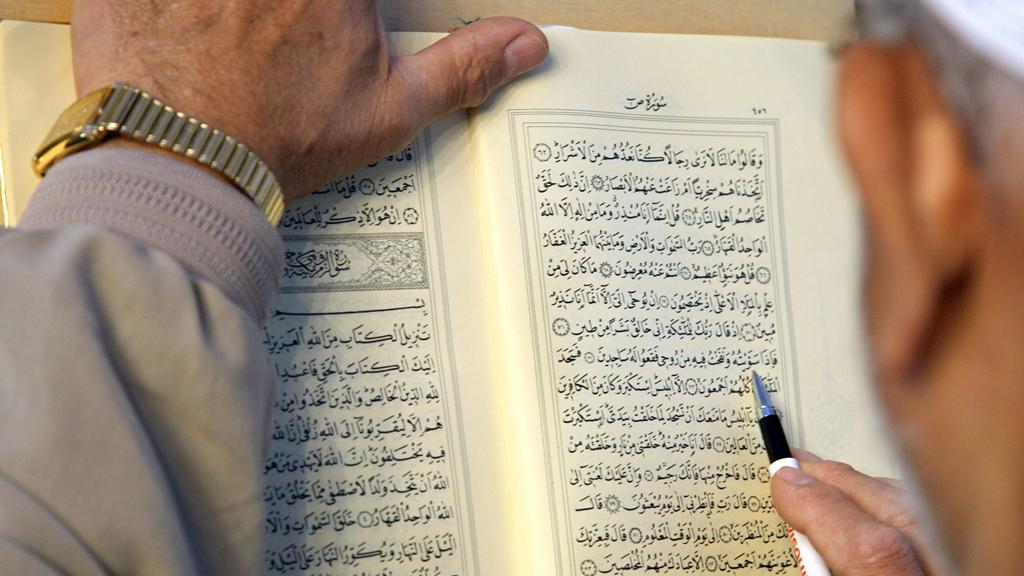 سورة ص ٤٥٦
وقالوا ما لنا لا نرى رجالا كنا نعدهم من الاشرار
اتخذناهم سخريا ام زاغت عنهم الابصار ان ذلك لحق
تخاصم اهل النار قل انما انا منذر وما من اله الا الله
الواحد القهار رب السموات والارض وما بينهما العزيز الغفار
قل هو نبؤا عظيم انتم عنه معرضون ما كان لي من
علم بالملا الاعلى اذ يختصمون ان يوحى الي الا انما انا نذير
مبين اذ قال ربك للملئكة اني خالق بشرا من طين
فاذا سويته ونفخت فيه من روحي فقعوا له ساجدين فسجد
كلهم اجمعون الا ابليس استكبر وكان من الكافرين
ابليس ما منعك ان تسجد لما خلقت بيدي استكبرت
من العالين قال انا خير منه خلقتني من نار وخلقته من
قال فاخرج منها فانك رجيم وان عليك لعنتي الى
قال رب فانظرني الى يوم يبعثون قال
من المنظرين الى يوم الوقت المعلوم قال فبعزتك
اجمعين الا عبادك منهم المخلصين
قال
اجمعين قل ما
ان هو الا ذكر للعالمين
سورة الزمر مكية
تنزيل الكتاب من الله العزيز
اليك الكتاب بالحق فاعبد
لله الدين الخالص والذين اتخذوا من
هم الا ليقربونا الى الله زلفى ان الله
فيه يختلفون ان الله لا يهدي من هو
الله ان يتخذ ولدا لاصطفى مما يخلق ما
الله الواحد القهار خلق السموات والا
اليل على النهار ويكور النهار على اليل